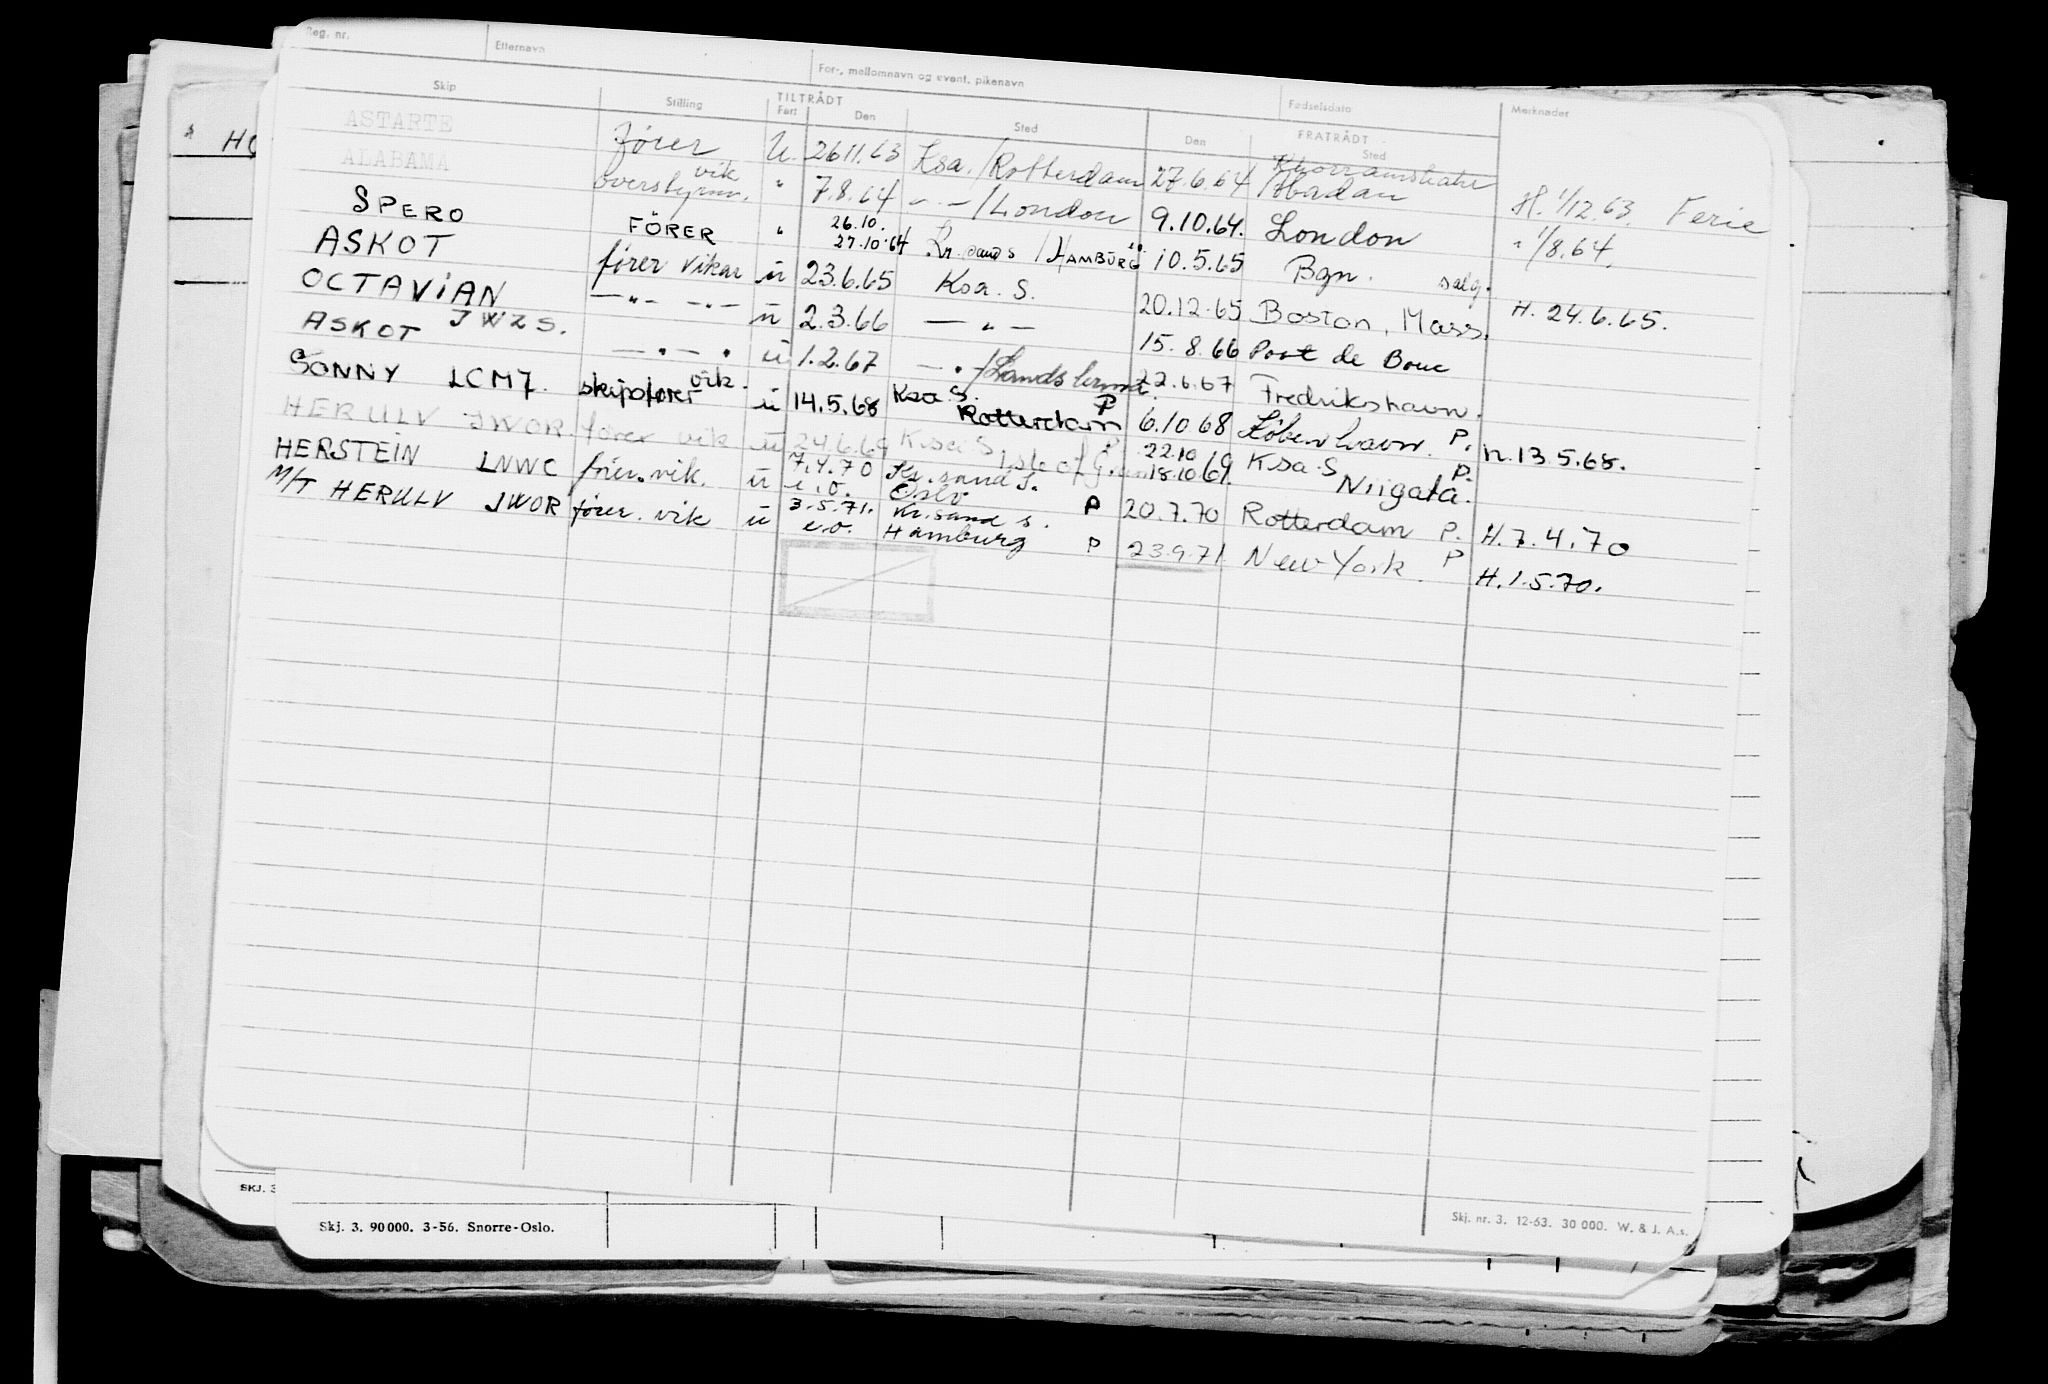 Reg. nr. Etternavn For-, mellomnavn og event. pikenavn Fødselsdato Merknader
Skip Stilling TILTRÅDT FRATRÅDT
Fart Den Sted Den Sted
ASTARTE fører U. 26.11.63 Ksa./Rotterdam 27.6.64 Khorramshahr /Abadan H. 1/12.63. Ferie
ALABAMA overstyrm. vik " 7.8.64 — " — /London 9.10.64. London " 1/8.64.
SPERO FÖRER " 26.10. 27.10.64 Kr.sand S /HAMBURG 10.5.65 Bgn. salg.
ASKOT fører vikar u 23.6.65 Ksa. S. 20.12.65 Boston, Mass. H. 24.6.65.
OCTAVIAN JWZS. — " — — " — u 2.3.66 — " — 15.8.66 Port de Bouc
ASKOT — " — " u 1.2.67 — " — /Landskrona 22.6.67 Fredrikshavn.
SONNY LCM7. skipsfører vik. u 14.5.68 Ksa. S. Rotterdam P 6.10.68 København. P. h. 13.5.68.
HERULV JWOR. fører vik u 24.6.69 Ksa. S Isle of Grain P 22.10 18.10.69 Ksa. S Niigata. P.
HERSTEIN LNWC fører. vik. u 7.4.70 e.o. Kr.sand S. Oslo P 20.7.70 Rotterdam P. H. 7.4.70
M/T HERULV JWOR fører. vik u 3.5.71. e.o. Kr.sand s. Hamburg P 23.9.71 New York. P H. 1.5.70.
SKJ. 3
Skj. 3. 90 000. 3-56. Snorre-Oslo.
Skj. nr. 3. 12-63. 30 000. W. & J. A.s.